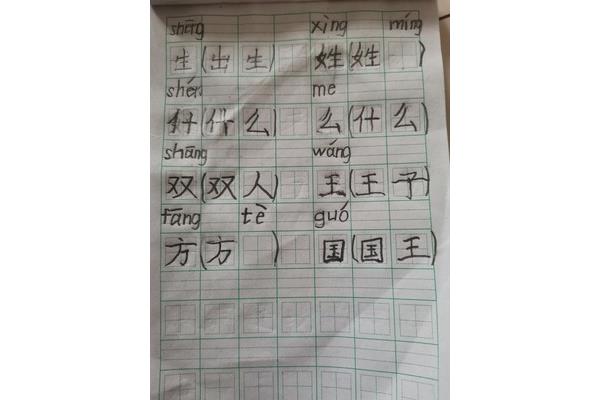 shēng xìng míng
生(出生) 姓(姓 )
shén me
什(什么) 么(什么)
shāng wáng
双(双人) 王(王子)
fāng tè guó
方(方 ) 国(国王)